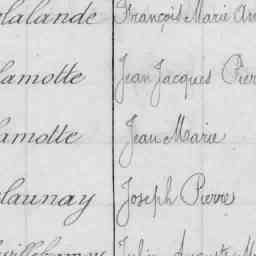 lalande François Marie
lamotte Jean Jacques Pier
lamotte Jean Marie
launay Joseph Pierre